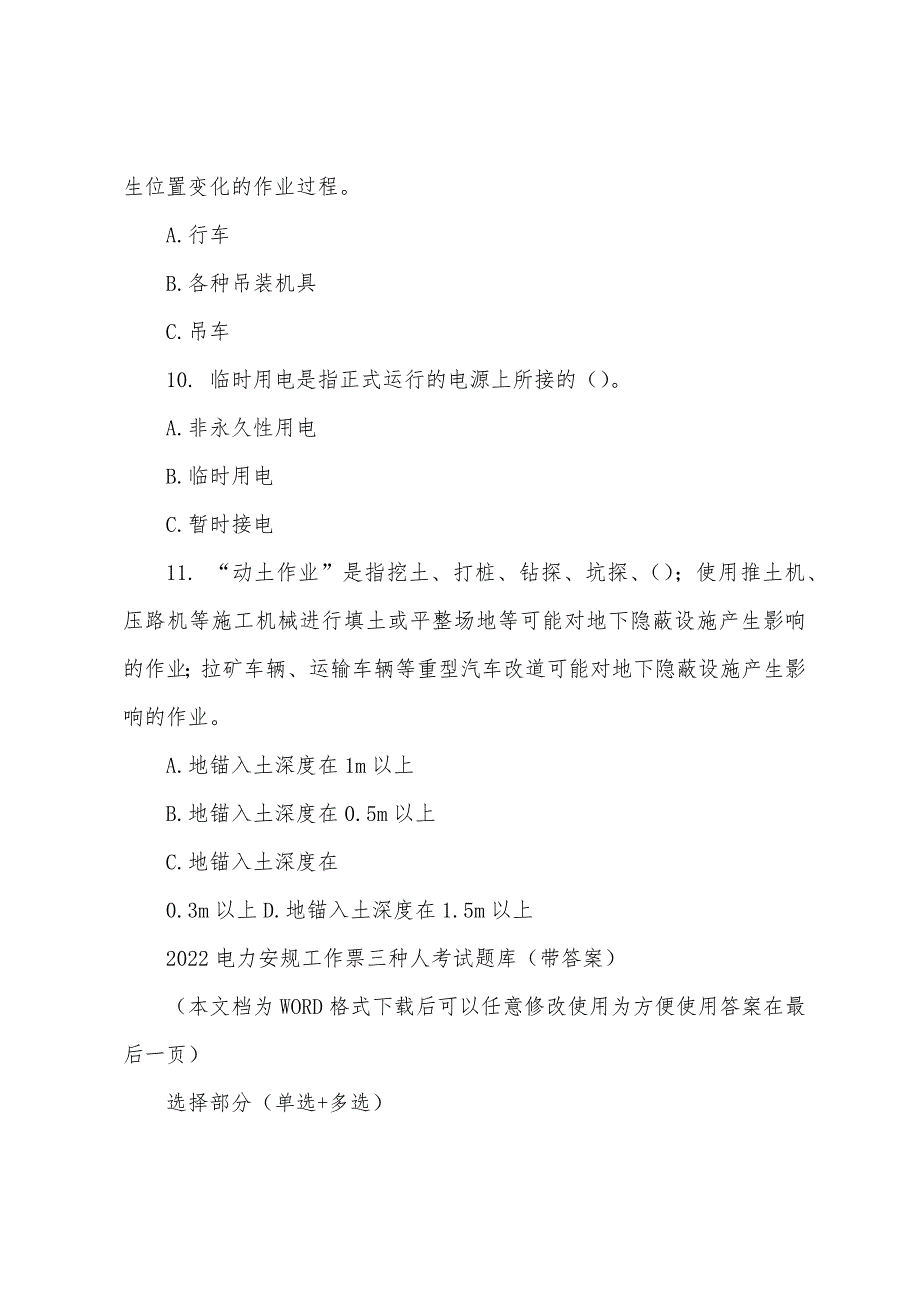 生位置变化的作业过程。
A.行车
B.各种吊装机具
C.吊车
10. 临时用电是指正式运行的电源上所接的（）。
A.非永久性用电
B.临时用电
C.暂时接电
11. “动土作业”是指挖土、打桩、钻探、坑探、（）；使用推土机、
压路机等施工机械进行填土或平整场地等可能对地下隐蔽设施产生影响
的作业；拉矿车辆、运输车辆等重型汽车改道可能对地下隐蔽设施产生影
响的作业。
A.地锚入土深度在 1m 以上
B.地锚入土深度在 0.5m 以上
C.地锚入土深度在
0.3m 以上 D.地锚入土深度在 1.5m 以上
2022 电力安规工作票三种人考试题库（带答案）
（本文档为 WORD 格式下载后可以任意修改使用为方便使用答案在最
后一页）
选择部分（单选+多选）